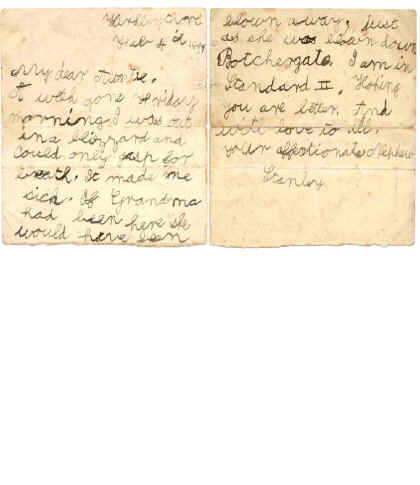 My dear Auntie,
A week gone Friday
morning I was out
in a blizzard and
could only gasp for
breath. It made me
sick. If Grandma
had been here she
would have been
blown away, just
as she was blown down
Botchergate. I am in
Standard II. Hoping
you are better. And
with love to all,
your affectionate Nephew
Stanley